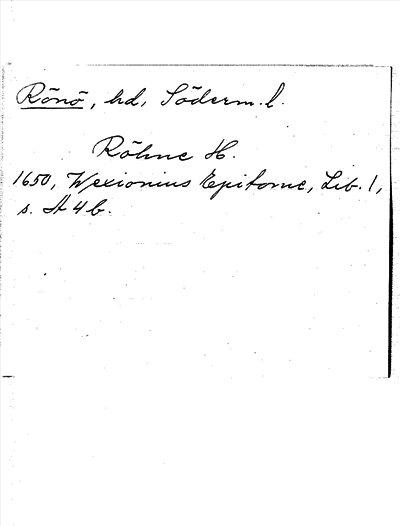 Rönö, hd, Söderm. l.
Röhne H.
1650, Wexionius Epitome, Lib. 1,
s. A 4 b.